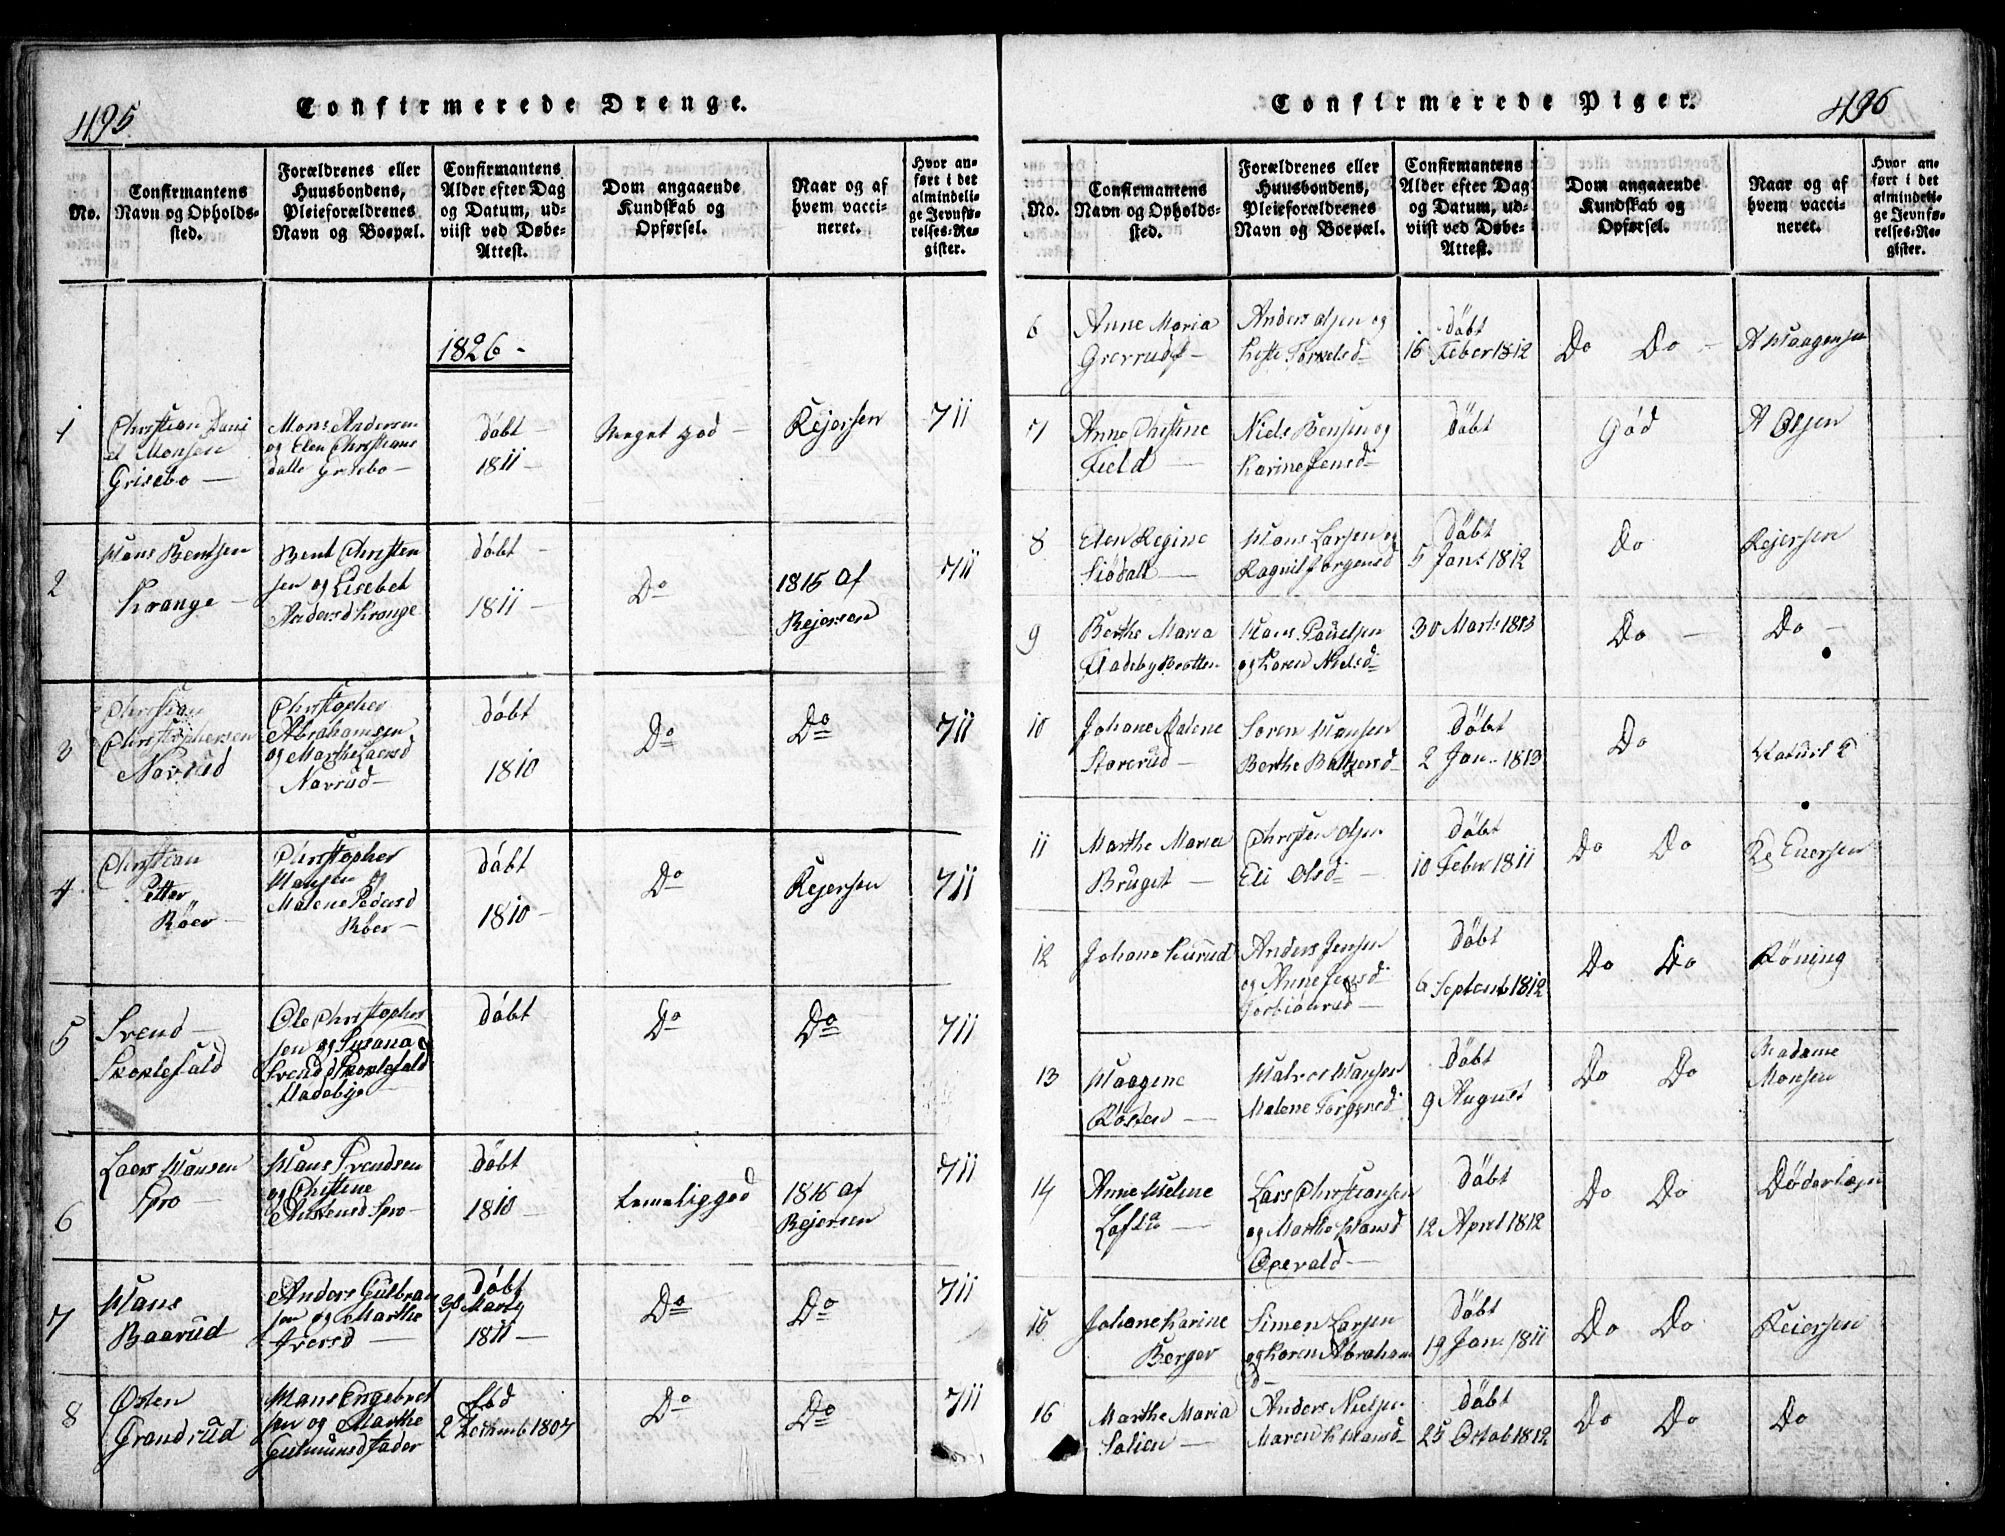 495
Confirmerede Drenge.
No.
Confirmantens
Navn og Opholds-
sted.
Forældrenes eller
Huusbondens,
Pleieforældrenes
Navn og Boepæl.
Confirmantens
Alder efter Dag
og Datum, ud-
viist ved Døbe-
Attest.
Dom angaaende
Kundskab og
Opførsel.
Naar og af
hvem vacci-
neret.
Hvor an-
ført i det
almindeli-
ge Jevnfø-
relses-Re-
gister.
1826 -
1
Christian Dani
el Monsen
Grisebo —
Mons Andersen
og Elen Christians
datte Grisebo —
døbt -
1811 —
Meget god —
Rejersen
711
2
Hans Bentsen
Krange —
Bent Christen
sen og Lisebet
Andersd Krange
døbt -
1811 —
Do
1815 af
Rejersen
711
3
Christian
Christophersen
Navrud
Christopher
Abrahamsen
og Marthe Larsd
Navrud —
døbt
1810
Do
Do
711
4
Christian
Petter
Röer —
Christopher
Hansen og
Malene Pedersd
Röer —
døbt
1810 —
Do
Rejersen
711
5
Svend —
Skoklefald
Ole Christopher
sen og Susana
Svendsd Skoklefald
døbt
Do
Do
711
6
Laers Hansen
Spro —
Hans Svendsen
og Christine
Spro —
døbt
1810 —
Temelig god
1816 af
Rejersen
711
7
Hans
Baarud
Anders Gulbran
sen og Marthe
Iversd —
Døbt
Marty
1811 —
Do
Do
711
8
Østen
Grandrud
Hans Engebret
sen og Marthe
Gulmunsd
Fød
2 1807
Do
Do
711
496
Confirmerede Piger.
No.
Confirmantens
Navn og Opholds-
sted.
Forældrenes eller
Huusbondens,
Pleieforældrenes
Navn og Boepæl.
Confirmantens
Alder efter Dag
og Datum, ud-
viist ved Døbe-
Attest.
Dom angaaende
Kundskab og
Opførsel.
Naar og af
hvem vacci-
neret.
Hvor an-
ført i det
almindeli-
ge Jevnfø-
relses-Re-
gister.
6
Anne Maria
Anders Olsen og
Torkelsd —
døbt
16 Feber 1812
Do Do —
A Haagensen
7
Anne Christine
Field —
Niels Bensen og
Karine Jensd
døbt
God
A Olsen
8
Elen Regine
Siødalt —
Hans Larsen og
Ragnil Jørgensd
døbt
5 Jan. 1812
Do
Rejersen
9
Berthe Maria
Fladebybrotten
Hans Pouelsen
og Karen Nielsd
30 Marts 1813
Do —
Do —
10
Johane Malene
Storerud —
Soren Hansen
Berthe Baltzersd
Døbt
2 Jan. 1813
Do
11
Marthe Maria
Bruget —
Christen Olsen
Eli Olsd —
døbt
10 Feber 1811
Do Do
12
Johane
Anders Jensen
og Anne Jensd
Døbt
6 Septemb 1812
Do Do
Röning
13
Haagene
Rosten —
Halvor Hansen
Malene Torgersd
Døbt
9 August
Do Do
Madame
Monsen
14
Anne Helene
Loftu —
Lars Christiansen
og Marthe Hansd
Oxevald —
døbt
12 April 1812
Do Do
Döderlejn
15
Johane Karine
Berger
Simen Larsen
og Karen Abraham
d —
døbt
19 Jan. 1811
Do Do
Reiersen
16
Marthe Maria
Solien —
Anders Nielsen
Maren Hansd
døbt
25 Octob 1812
Do Do
Do